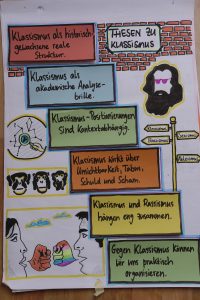 Klassismus als historisch
gewachsene reale
Struktur.
THESEN ZU
KLASSISMUS
Klassismus als
akademische Analyse-
brille.
Klassismus-Positionierungen
sind Kontextabhängig.
Klassismus wirkt über
Unsichtbarkeit, Tabom,
Schuld und Scham.
Klassismus und Rassismus
hängen eng zusammen.
Gegen Klassismus können
wir uns praktisch
organisieren.